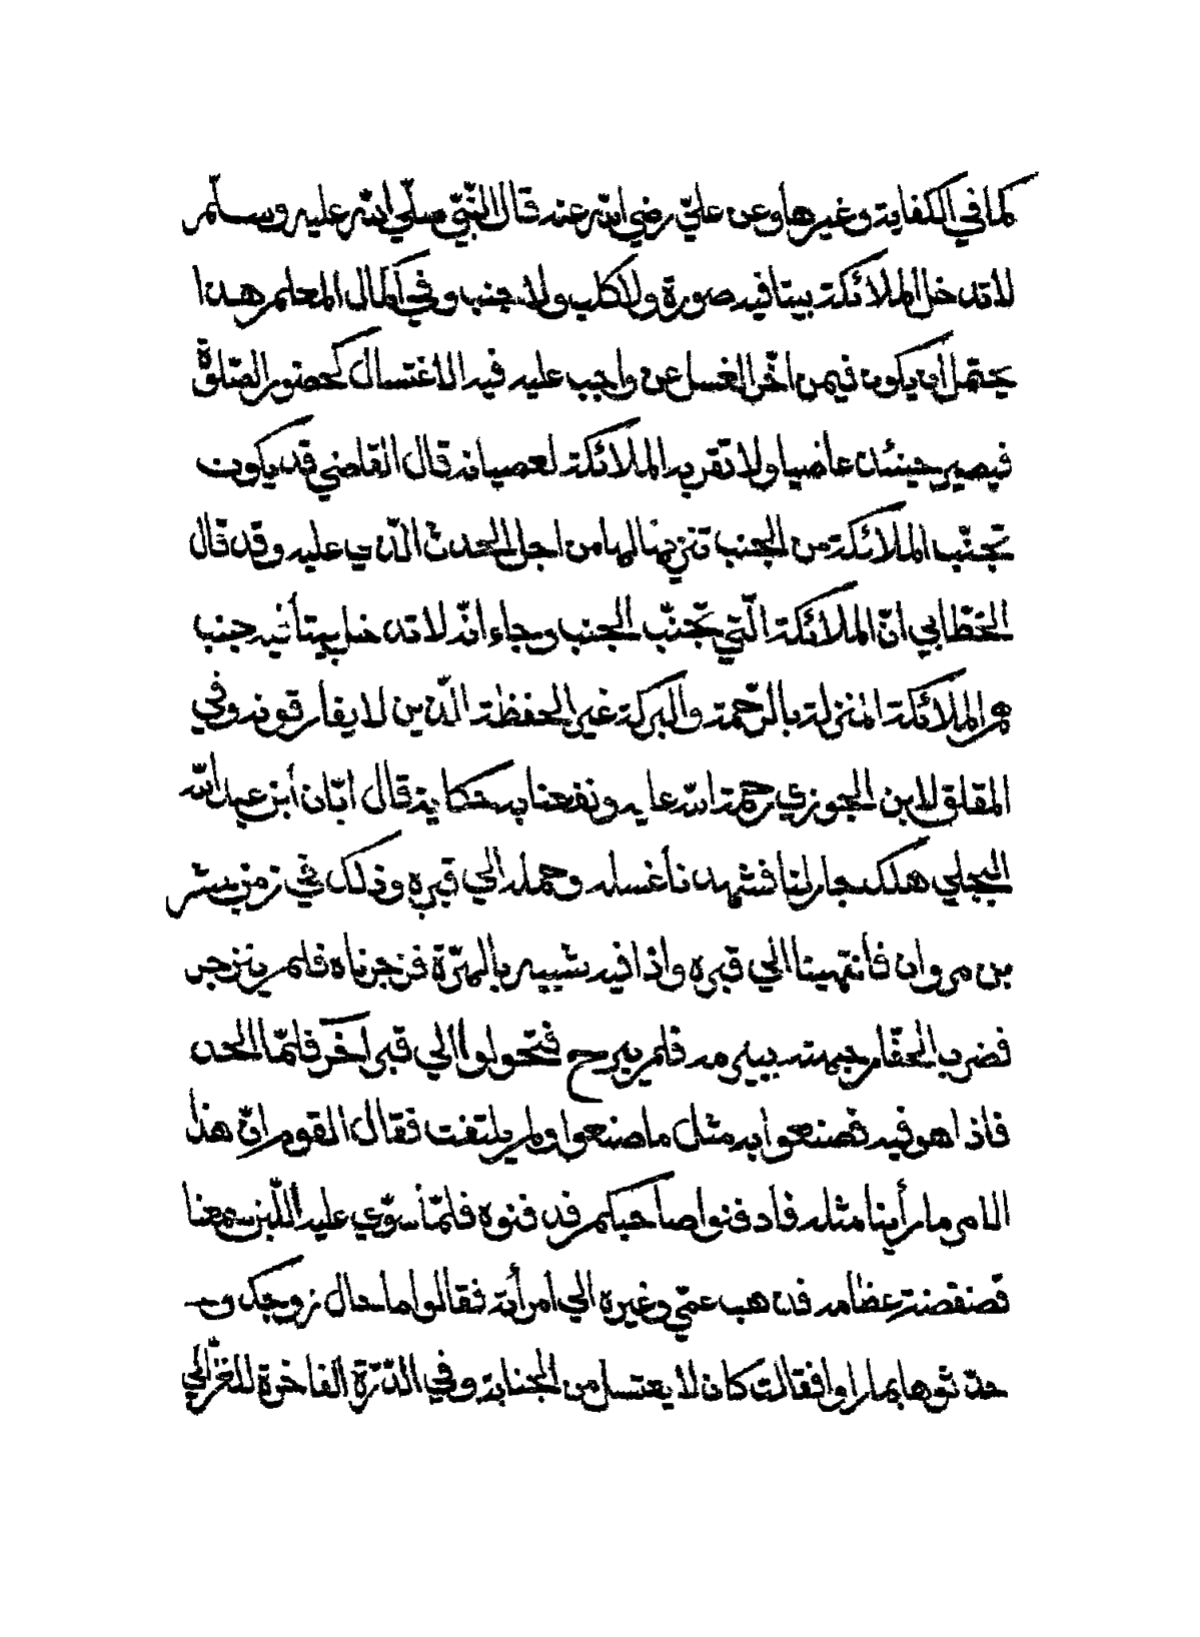 كما في الكفاية وغيرها وعن عليّ رضي الله عنه قال النّبيّ صلّي الله عليه وسلّم
لا تدخل الملائكة بيتا فيه صورة ولا كلب ولا جنب وفي اكمال المعلم هذا
يحتمل ان يكون فيمن اخّر الغسل عن واجب عليه فيه الاغتسال كحضور الصّلوة
فيصير حينئذ عاصيا ولا تقربه الملائكة لعصيانه قال القاضي قد يكون
تجنّب الملائكة من الجنب تنزيها لها من اجل الحدث الّذي عليه وقد قال
الخطّابي انّ الملائكة الّتي تجنّب الجنب وجاء انّه لا تدخل بيتا فيه جنب
هم الملائكة المنزلة بالرّحمة والبركة غير الحفظة الّذين لا يفارقونه وفي
المقلق لابن الجوزي رحمة الله عليه ونفعنا به حكاية قال ابّان أبن عبد الله
البجلي هلك جار لنا فشهدنا غسله وحمله الي قبره وذلك في زمن بشر
بن مروان فأنتهينا الي قبره واذا فيه شبيه بالهرّة فزجرناه فلم ينزجر
فضرب الحفّار جبهته ببيرمه فلم يبرح فتحولوا الي قبر آخر فلمّا الحد
فاذا هو فيه فصنعوا به مثل ما صنعوا ولم يلتفت فقال القوم انّ هذا
الامر ما رأينا مثله فادفنوا صاحبكم فدفنوه فلمّا سوّي عليه اللّبن سمعنا
قصنقضة عظامه فذهب عمّي وغيره الي امرأته فقالوا ما حال زوجك و
حدّثوها بما راوا فقالت كان لا يغتسل من الجنابة وفي الدّرّة الفاخرة للغزّالي